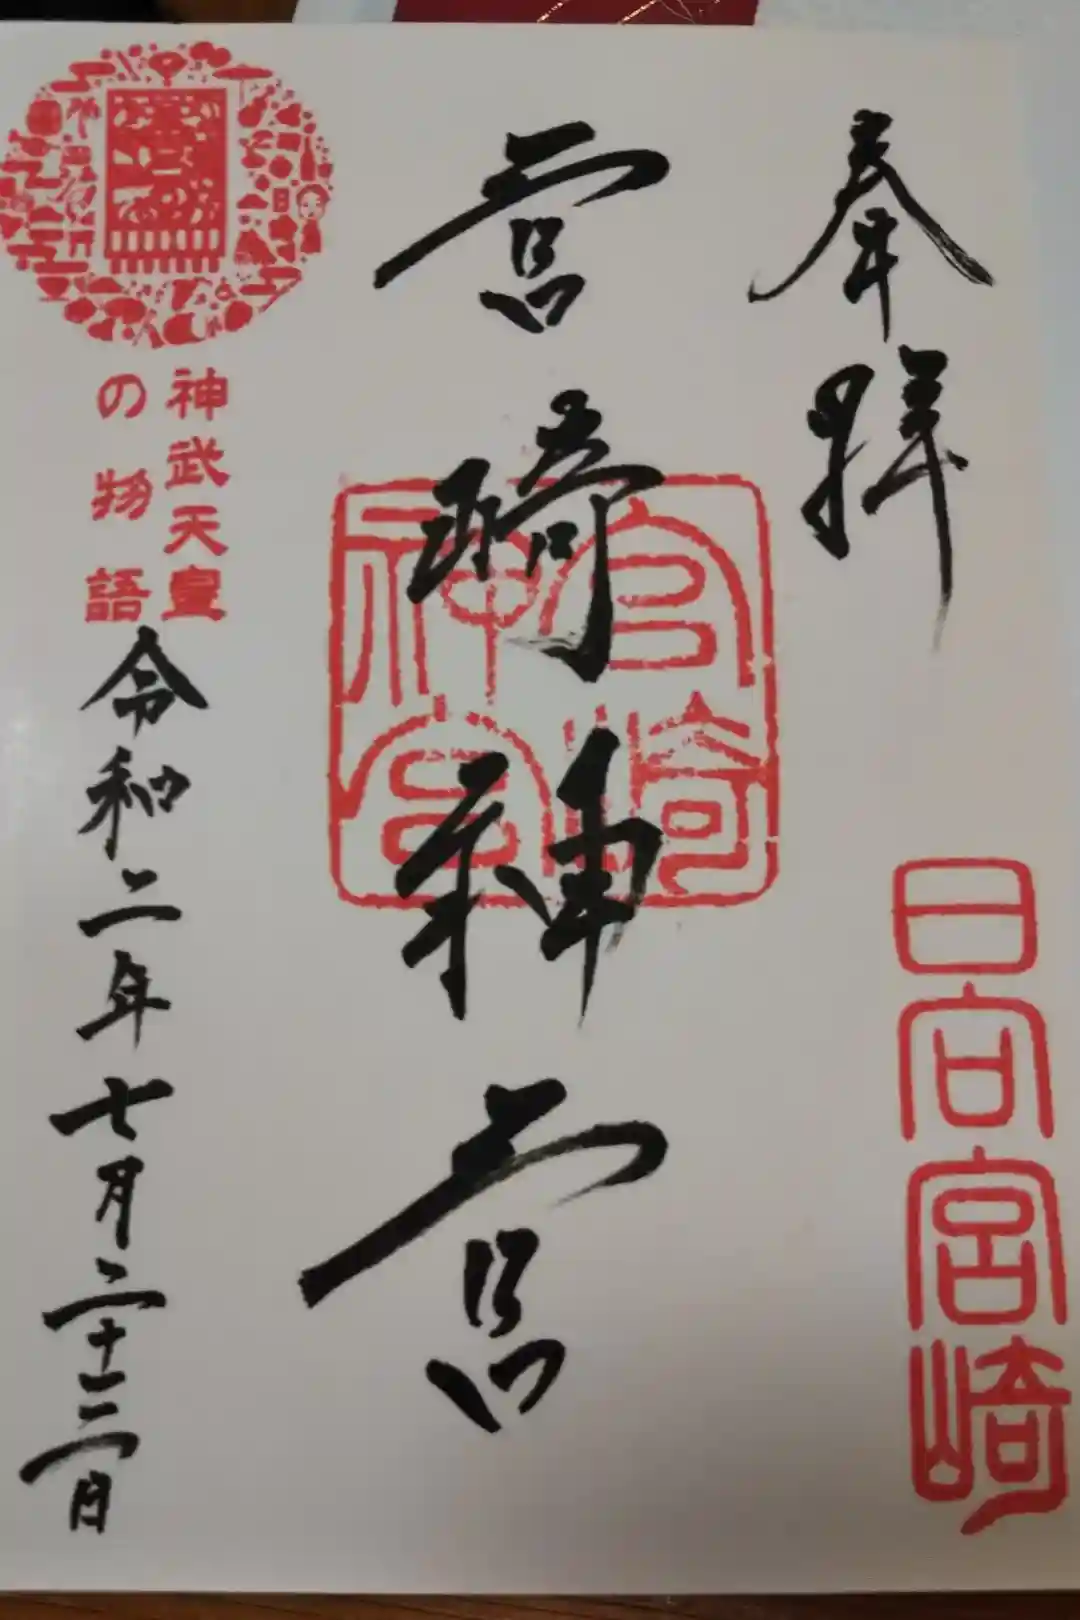 奉拝
日向宮崎
宮崎神宮
宮崎
神宮
神武天皇
の物語
令和二年七月二十三日